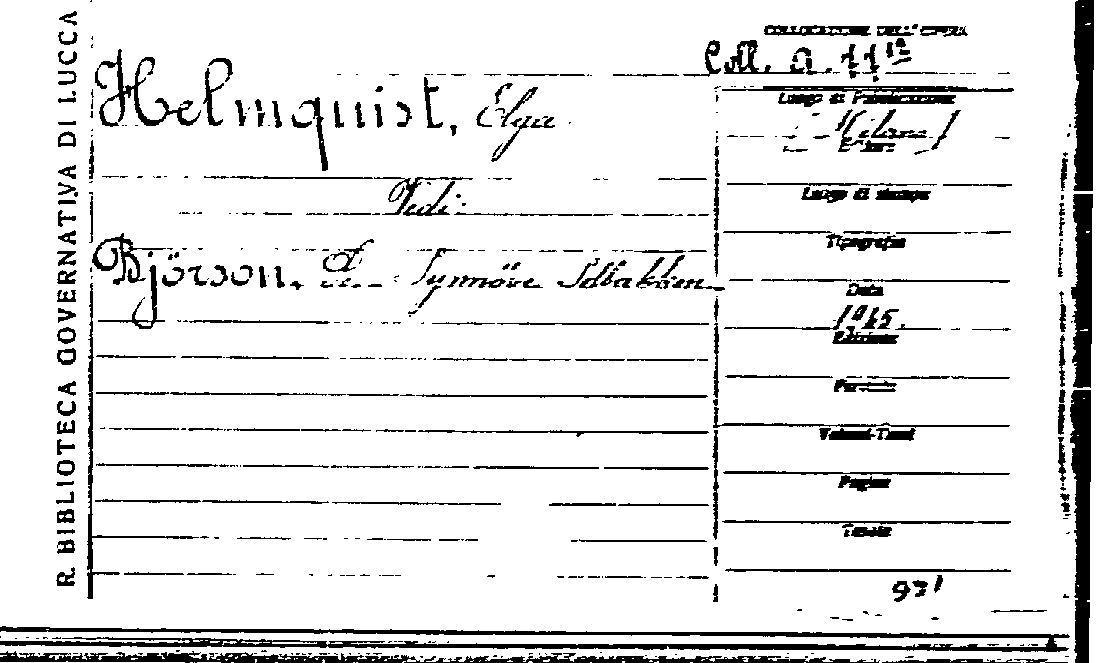 R. BIBLIOTECA GOVERNATIVA DI LUCCA
COLLOCAZIONE DELL'OPERA
Coll. a. 11
Helmquist, Elga.
Luogo di Pubblicazione
[Milano]
Editore
Vedi:
Luogo di stampa
Tipografia
Björson, Synnöve Solbakken
Data
Edizione
Volumi-Tomi
Pagine
Tavole
931